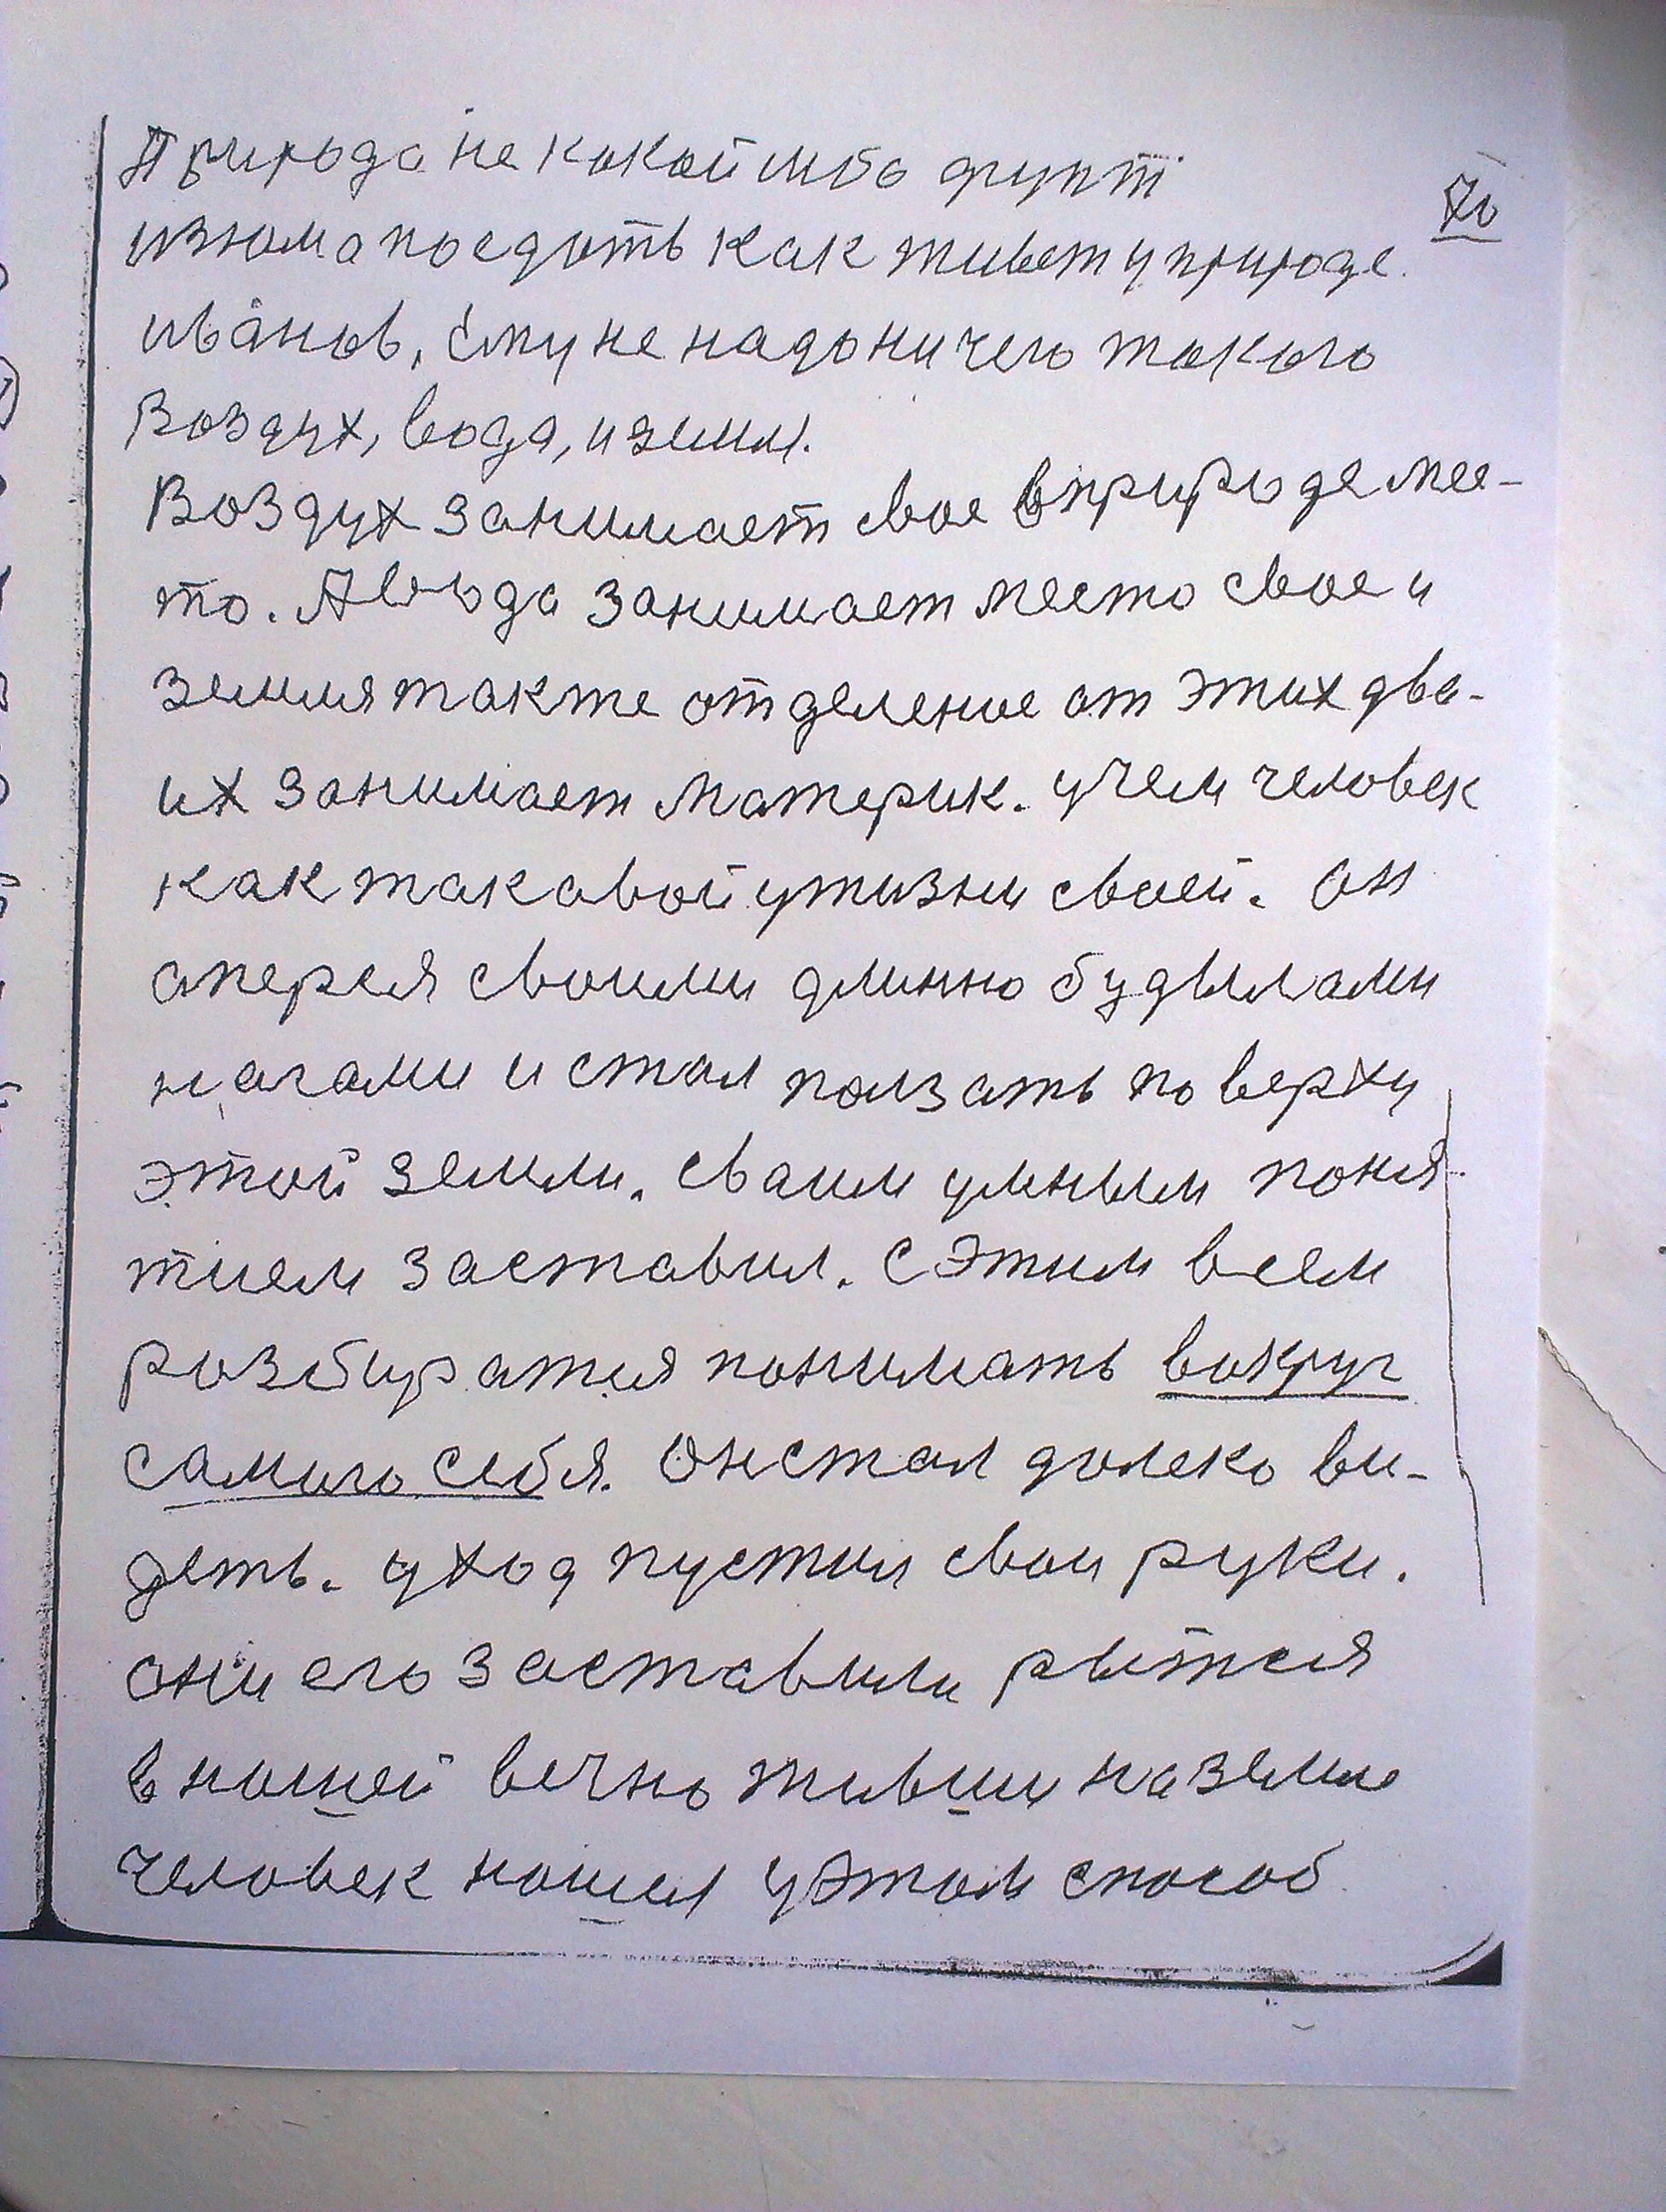 Природа не какой либо фунт
70
изюма поедать как живет у природе.
иванов, ему не надо ничего такого
Воздух, вода, и земля.
Воздух занимает свое в природе мес-
то. А вода занимает место свое и
земля также отделение от этих дво-
их занимает материк. у чем человек
как таковой у жизни своей. он
оперся своими длинно будылами
ногами и стал ползать по верху
этой земли. своим умным поня-
тием заставил. с этим всем
розбиратся понимать вокруг
самого себя. Он стал долеко ви-
деть. уход пустил свои руки.
они его заставили рытся
в нашей вечно живши на земле
человек нашел у этом способ